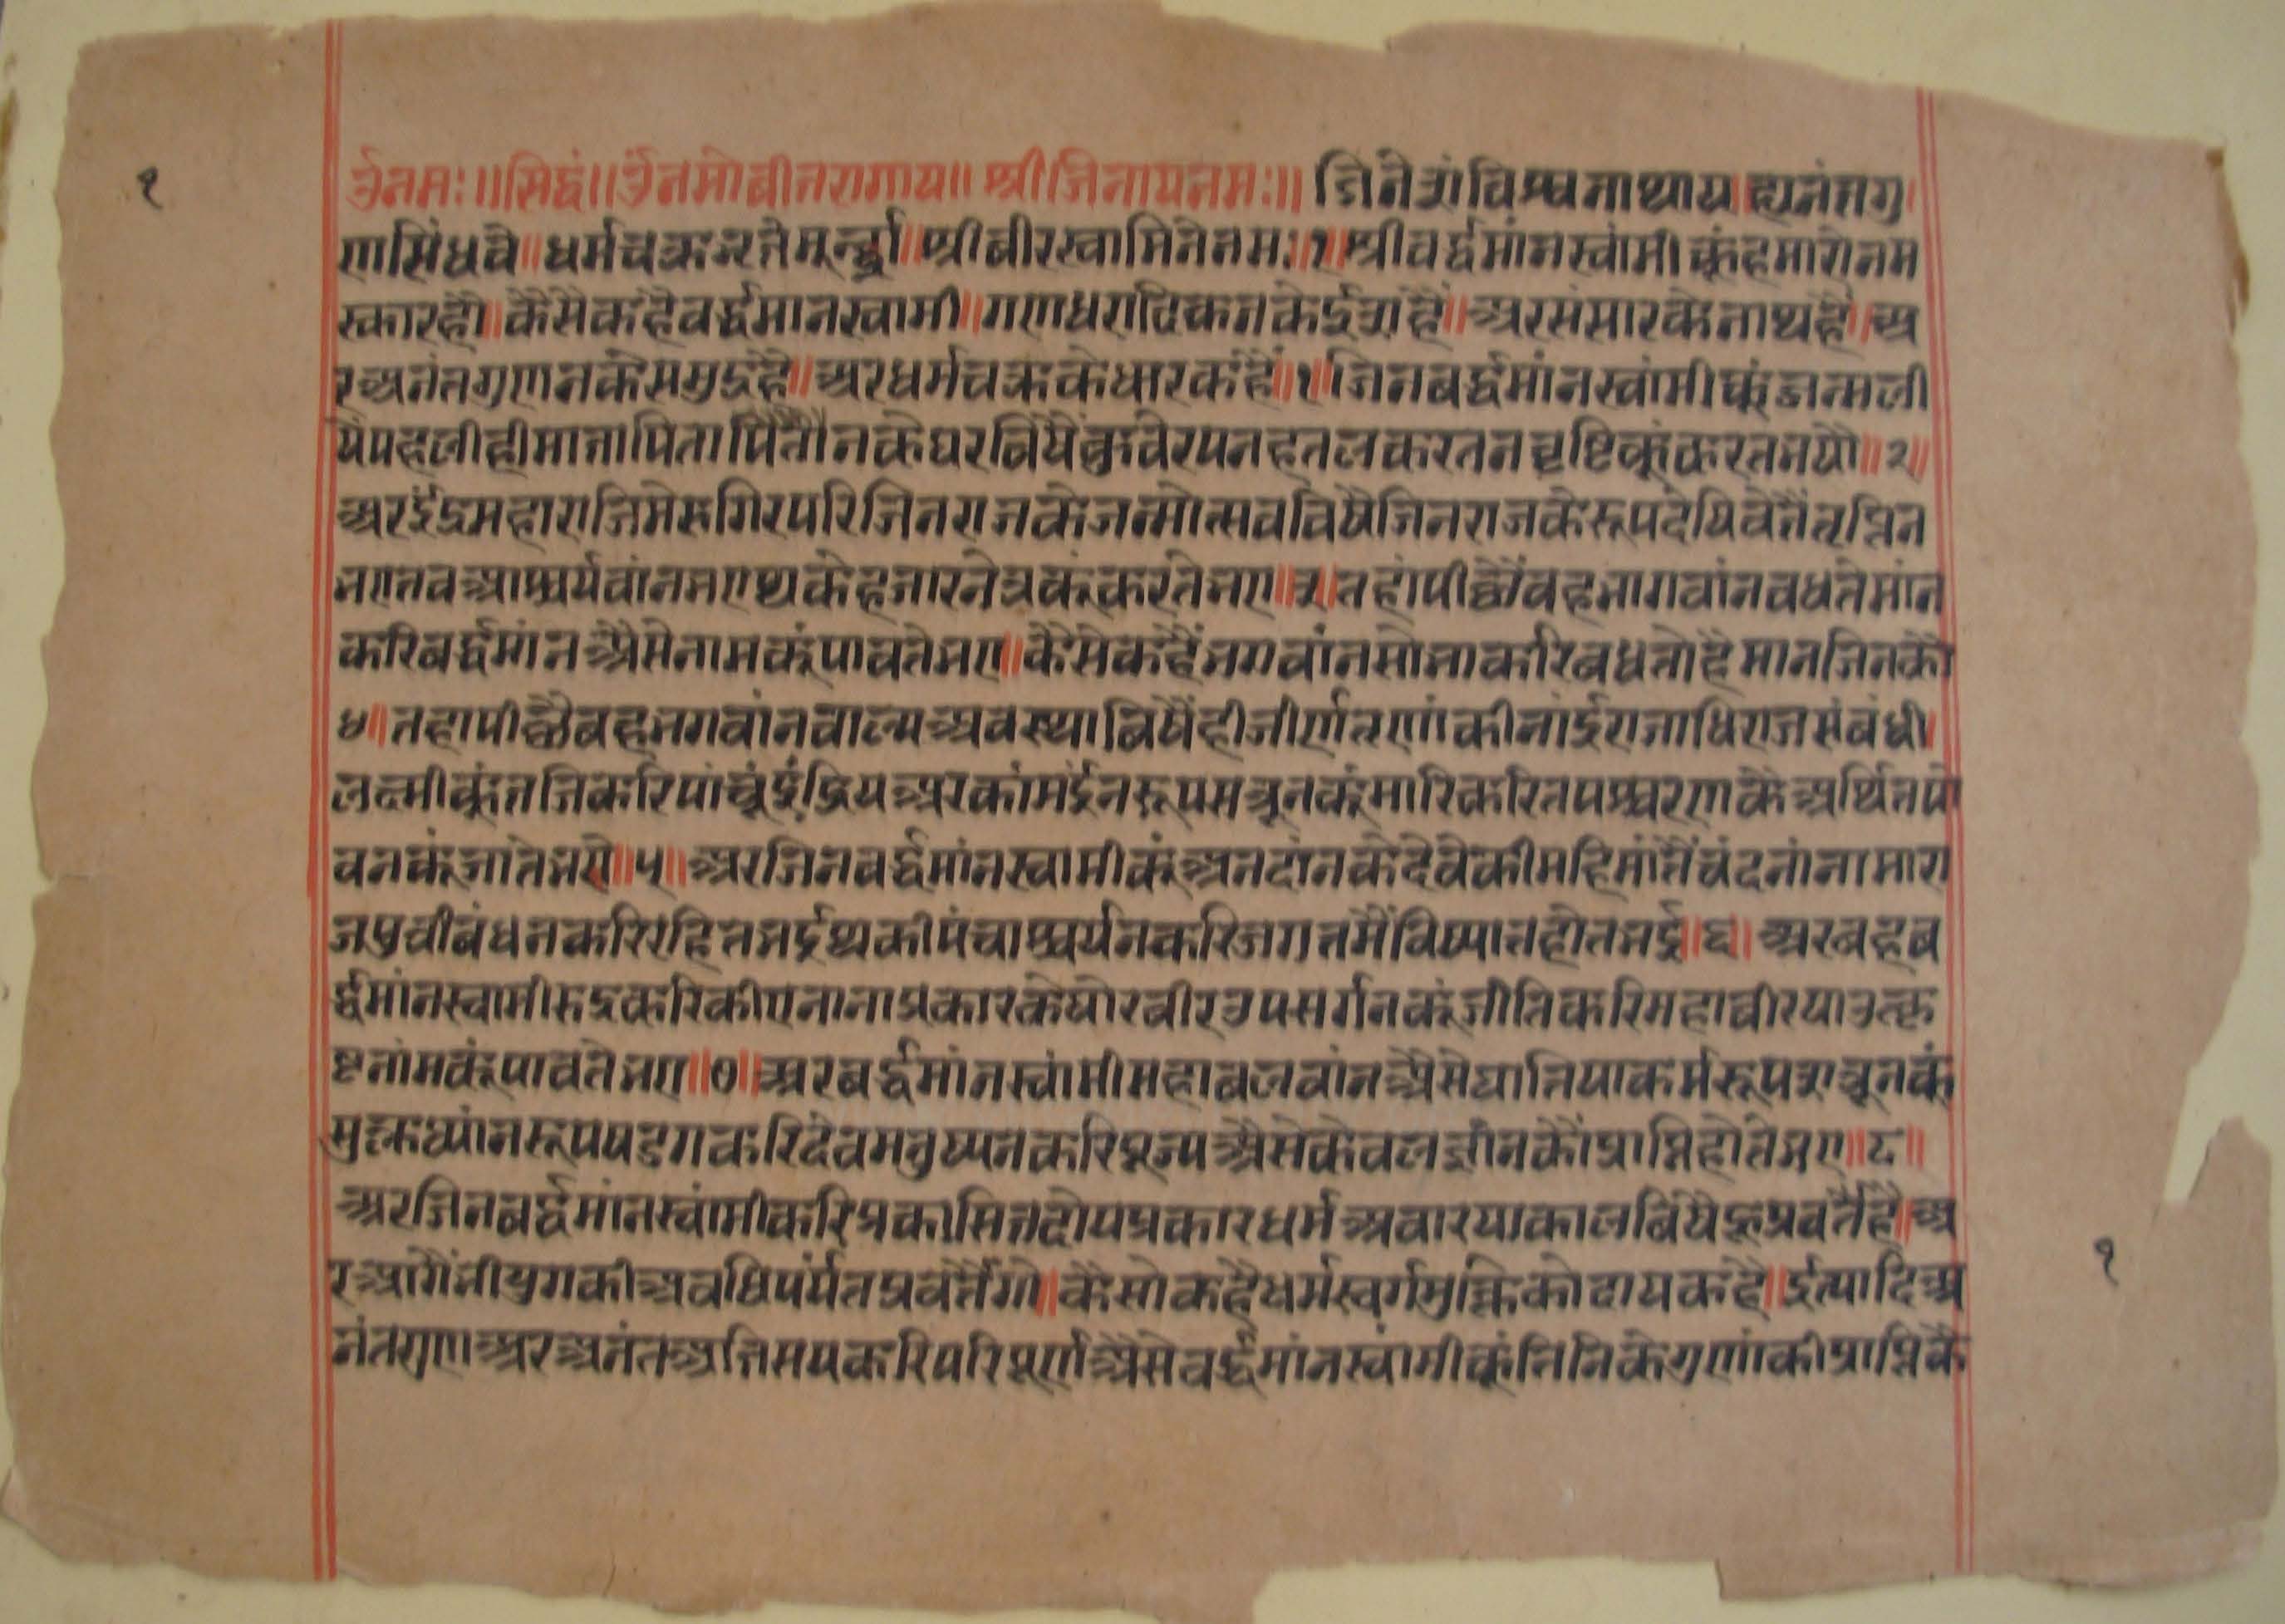 १
ॐनमः॥सिद्धं॥ॐनमोवीतरागाय॥श्रीजिनायनमः॥जिनेशंविश्वनाथाय।ह्यनंतगु
णसिंधवे॥धर्मचक्रभृतेमूर्द्ध्ना॥श्रीवीरस्वामिनेनमः॥१॥श्रीवर्द्धमांनस्वांमीकूंहमारोनम
स्कारहौ॥कैसेकहैवर्द्धमानस्वामी॥गणधरादिकनकेईशहैं॥अरसंसारकेनाथहैं॥अ
रअनंतगुणनकेसमुद्रहै॥अरधर्मचक्रकेधारकहैं॥१॥जिनवर्द्धमांनस्वांमीकूंजन्मली
येपहलीहीमातापिता नकेघरविषैंकुवेर करतनवृष्टिकूंकरतभयौ॥२॥
अरइंद्रमहाराजिमेरुगिरपरिजिनराजकेजन्मोत्सवविषैजिनराजकेरूपदेषिवेतैंतृप्तिन
भएतवआश्चर्यवांनभएथकेहजारनेत्रकूंकरतेभए॥३॥तहांपीछैंवहभगवांनवधतेमांन
करिवर्द्धमांनअैसेनामकूंपावतेभए॥कैसेकहैंभगवांनसोभाकरिवधतोहैमानजिनकौ
४॥तहापीछैवहभगवांनवाल्यअवस्थाविषैंहीजीर्णतृणांकीनांईराजाधिराजसंबंधी।
लक्ष्मीकूंतजिकरिपांचूंइंद्रियअरकांमईनरूपसत्रूनकूंमारिकरितपश्चरणकेअर्थितपो
वनकूंजातेभये॥५॥अरजिनवर्द्धमांनस्वामीकूंअनदांनकेदेवेकीमहिमांतैंचंदनांनामारा
जपुत्रीबंधनकरिरहितभईथकीपंचाश्चर्यनकरिजगतमैंविष्यातहोतभई॥६॥अरवहव
र्द्धमांनस्वामीरुद्रकरिकीएनानाप्रकारकेघोरवीरउपसर्गनकूंजीतिकरिमहावीरयाउत्कृ
ष्टनांमकूंपावतेभए॥७॥अरवर्द्धमांनस्वांमीमहावलवांनअैसेघातियाकर्मरूपशत्रूनकूं
सुक्लध्यांनरूपषडगकरिदेवमनुष्यनकरिपूज्यअैसेकेवलज्ञांनकौंप्राप्तिहोतेभए॥८॥
अरजिनवर्द्धमांनस्वांमीकरिप्रकासितदोयप्रकारधर्मअवारयाकालविषैहूप्रवर्तैहै॥अ
रआगैंतीयुगकीअवधिपर्यंतप्रवर्तैगो॥कैसोकहैधर्मस्वर्गमुक्तिकोदायकहै॥ईत्यादिअ
नंतगुणअरअनंतअतिसयकरिपरिपूर्णअैसेवर्द्धमांनस्वांमीकूंतिनिकेगुणांकीप्राप्तिकै
१